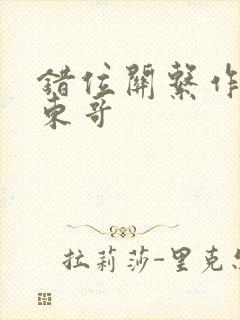 錯位關繫作
東哥
拉莉莎-里克